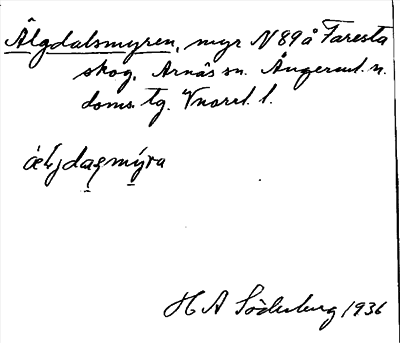 Älgdalsmyren, myr N 89 å Faresta
skog, Arnäs sn. Ångerml. n.
doms. tg. Vnorrl. l.
Hj A Söderberg 1936